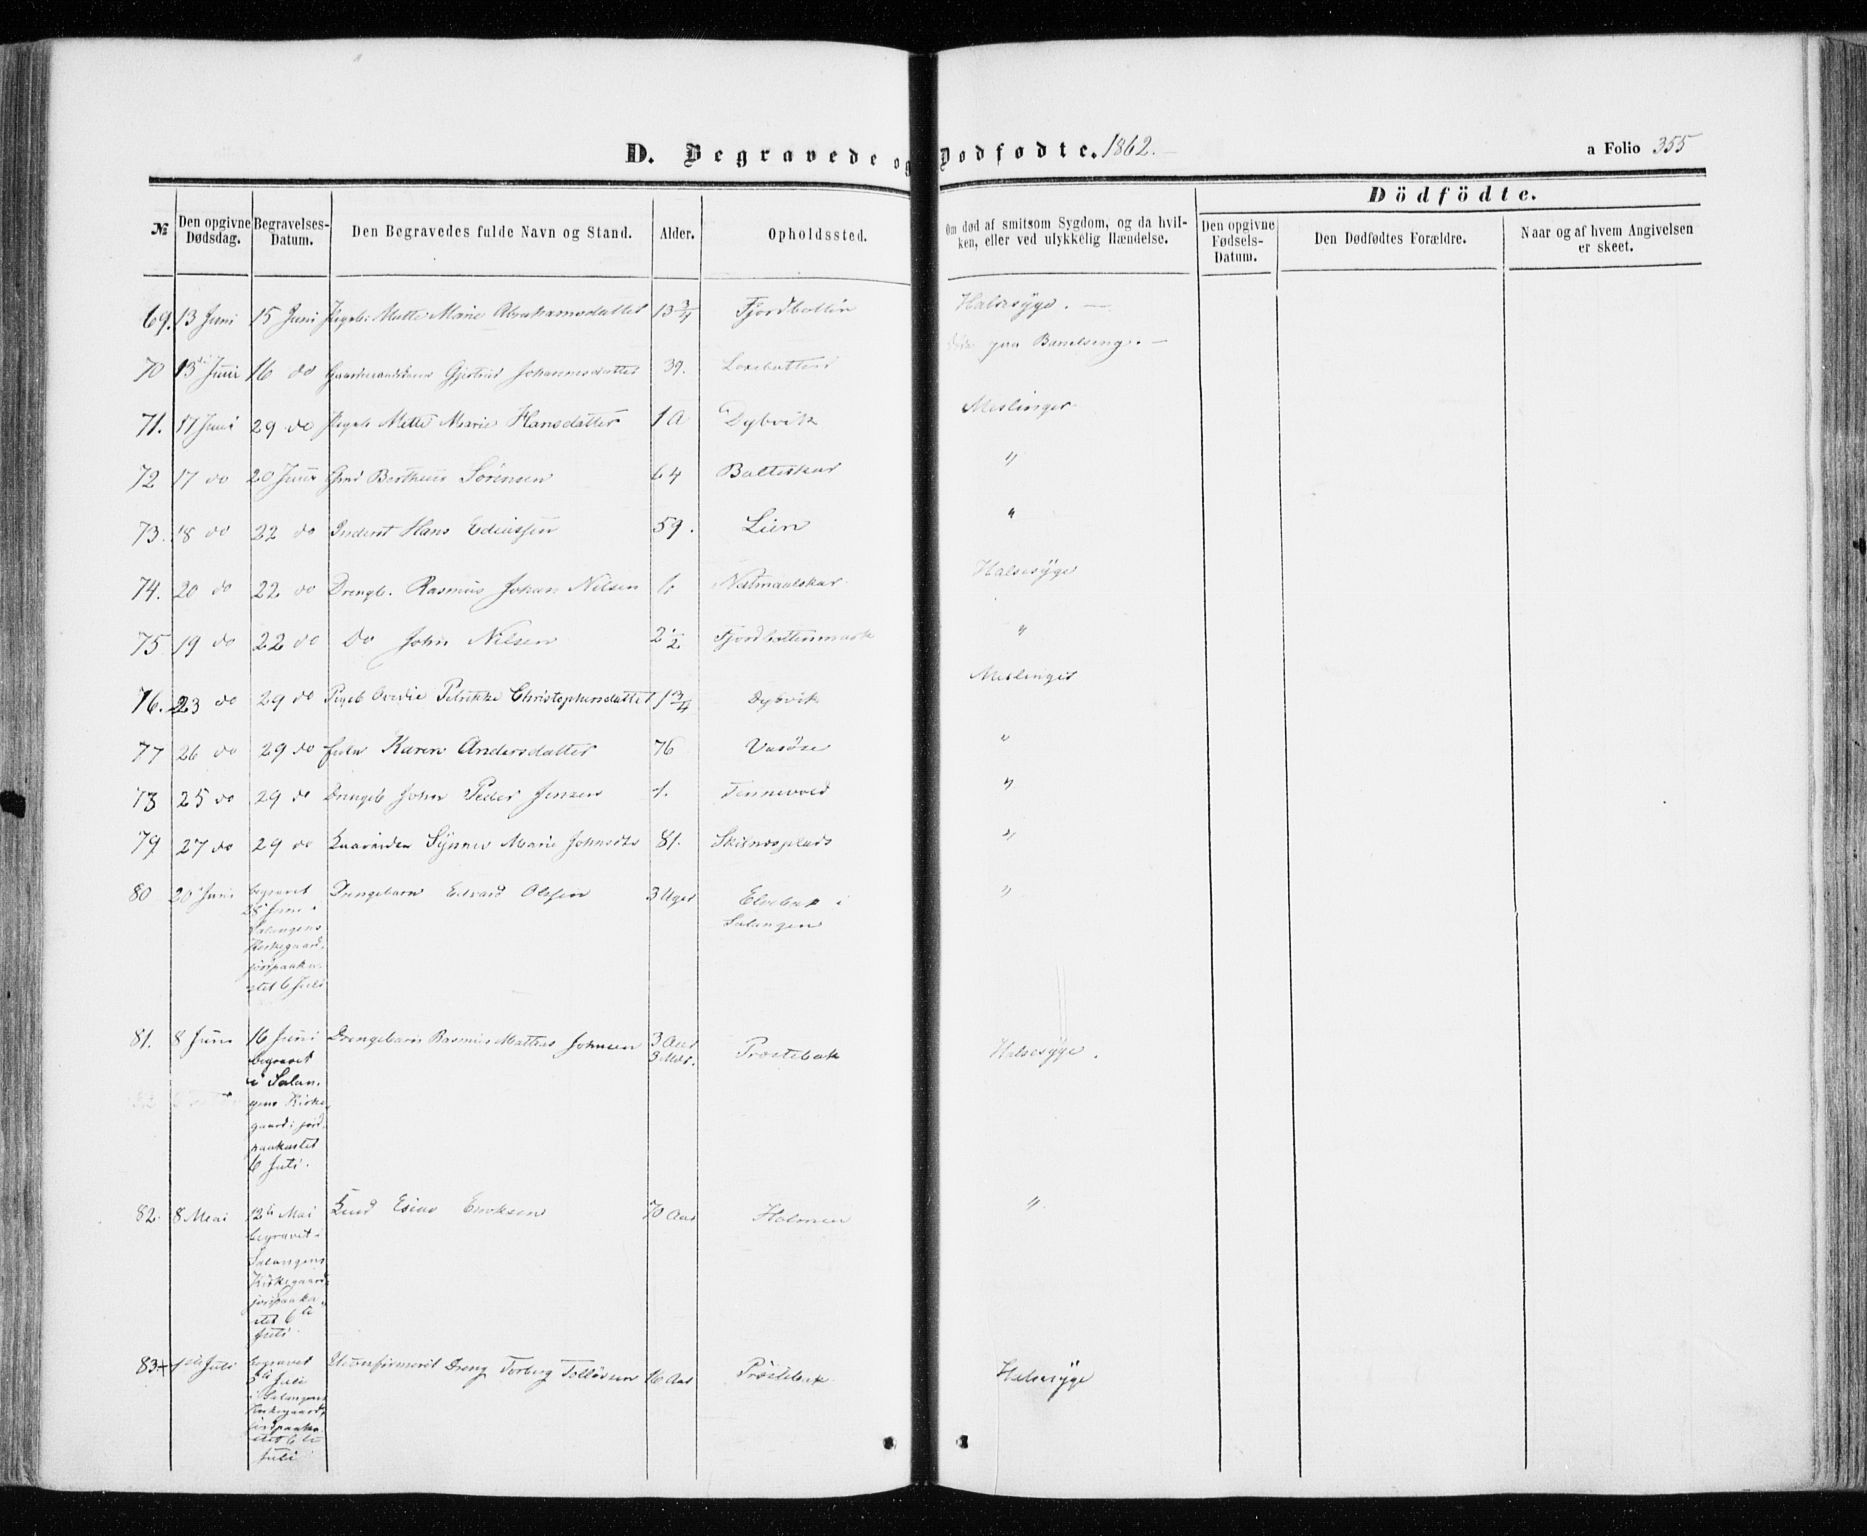 D. Begravede og Dødfødte. 1862. a Folio 355
Dödfödte.
№ Den opgivne Dødsdag. Begravelses-Datum. Den Begravedes fulde Navn og Stand. Alder. Opholdssted. Om død af smitsom Sygdom, og da hvilken, eller ved ulykkelig Hændelse. Den opgivne Fødsels-Datum. Den Dødfødtes Forældre. Naar og af hvem Angivelsen er skeet.
69. 13 Juni 15 Juni Pigeb: Mette Marie Abrahamsdatter 13 3/4 Fjordbotten Halssyge. —
70 13de Juni 16 do Gjertrud Johannesdatter 39. paa Barselseng. —
71. 17 Juni 29 do Pigeb Mette Marie Hansdatter 1 A Dybvik Meslinger
72 17 do 20 Juni Bertheus Sørensen 64 Balteskar "
73. 18 do 22 do Inderst Hans Ediassen 59. Lien "
74. 20 do 22 do Drengb. Rasmus Johan Nilsen Halsesyge
75 19 do 22 do Do John Nilsen 2 1/2 Fjordbottenmark "
76. 23 do 29 do Pigeb Ovedie Petrikke Christophersdatter 1 3/4 Dybvik Meslinger
77 26 do 29 do Karen Andersdatter 76 "
78 25 do 29 do Drengeb John Peder Jensen 1. Tennevold "
79 27 do 29 do Synnev Marie Johnsdtr 81. "
80 20de Juni begravet Drengebarn Edvard Olssen 3 Uger Elvebak i
28 Juni i Salangen
Salangens
Kirkegaard,
jordpaaka-
stet 6 Juli
81. 8 Juni 16 Juni Drengebarn Rasmus Mathias Johnsen 3 Aar Prestebak Halsesyge.
begravet 3 Mdr.
i Salan-
gens Kirke-
gaard; jord-
paakastet
6 Juli.
82. 8 Mai 12te Mai Esias Eriksen 70 Aar Holmen "
begravet i
Salangens
Kirkegaard
jordpaaka-
stet 6te
Juli.
83 + 1ste Juli begravet Ukonfirmeret Dreng Torberg Tollevsen 16 Aar Prestebak Halsesyge
5te Juli
i Salangens
Kirkegaard,
jordpaaka-
stet 6te
Juli